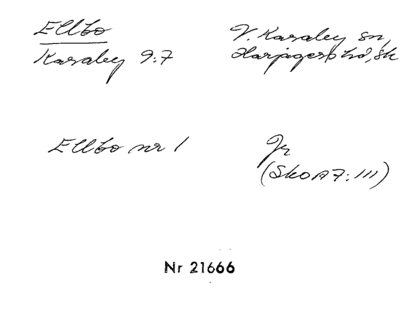 Ellbo
Karaby 9:7
V. Karaby sn,
Harjagers hd, Sk
Ellbo nr 1
Jr
(SkOA7:III)
Nr 21666